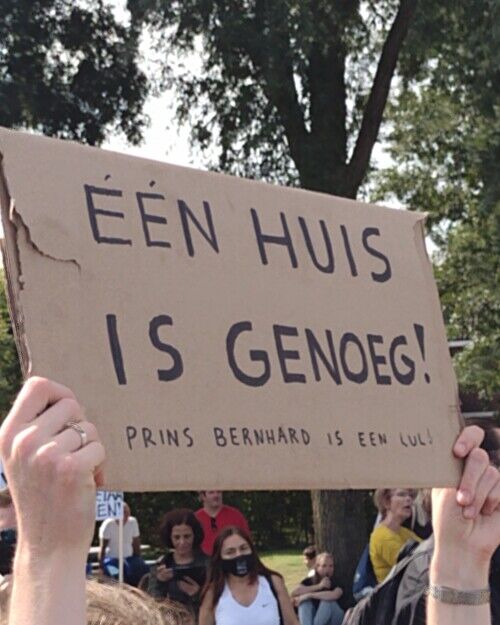 ÉÉN HUIS
IS GENOEG!
PRINS BERNHARD IS EEN LUL!